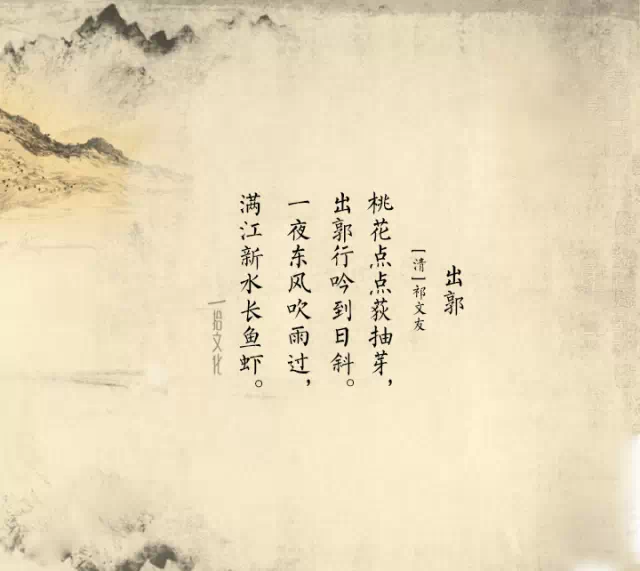 出郭
[清]祁文友
桃花点点荻抽芽，
出郭行吟到日斜。
一夜东风吹雨过，
满江新水长鱼虾。
一拾文化